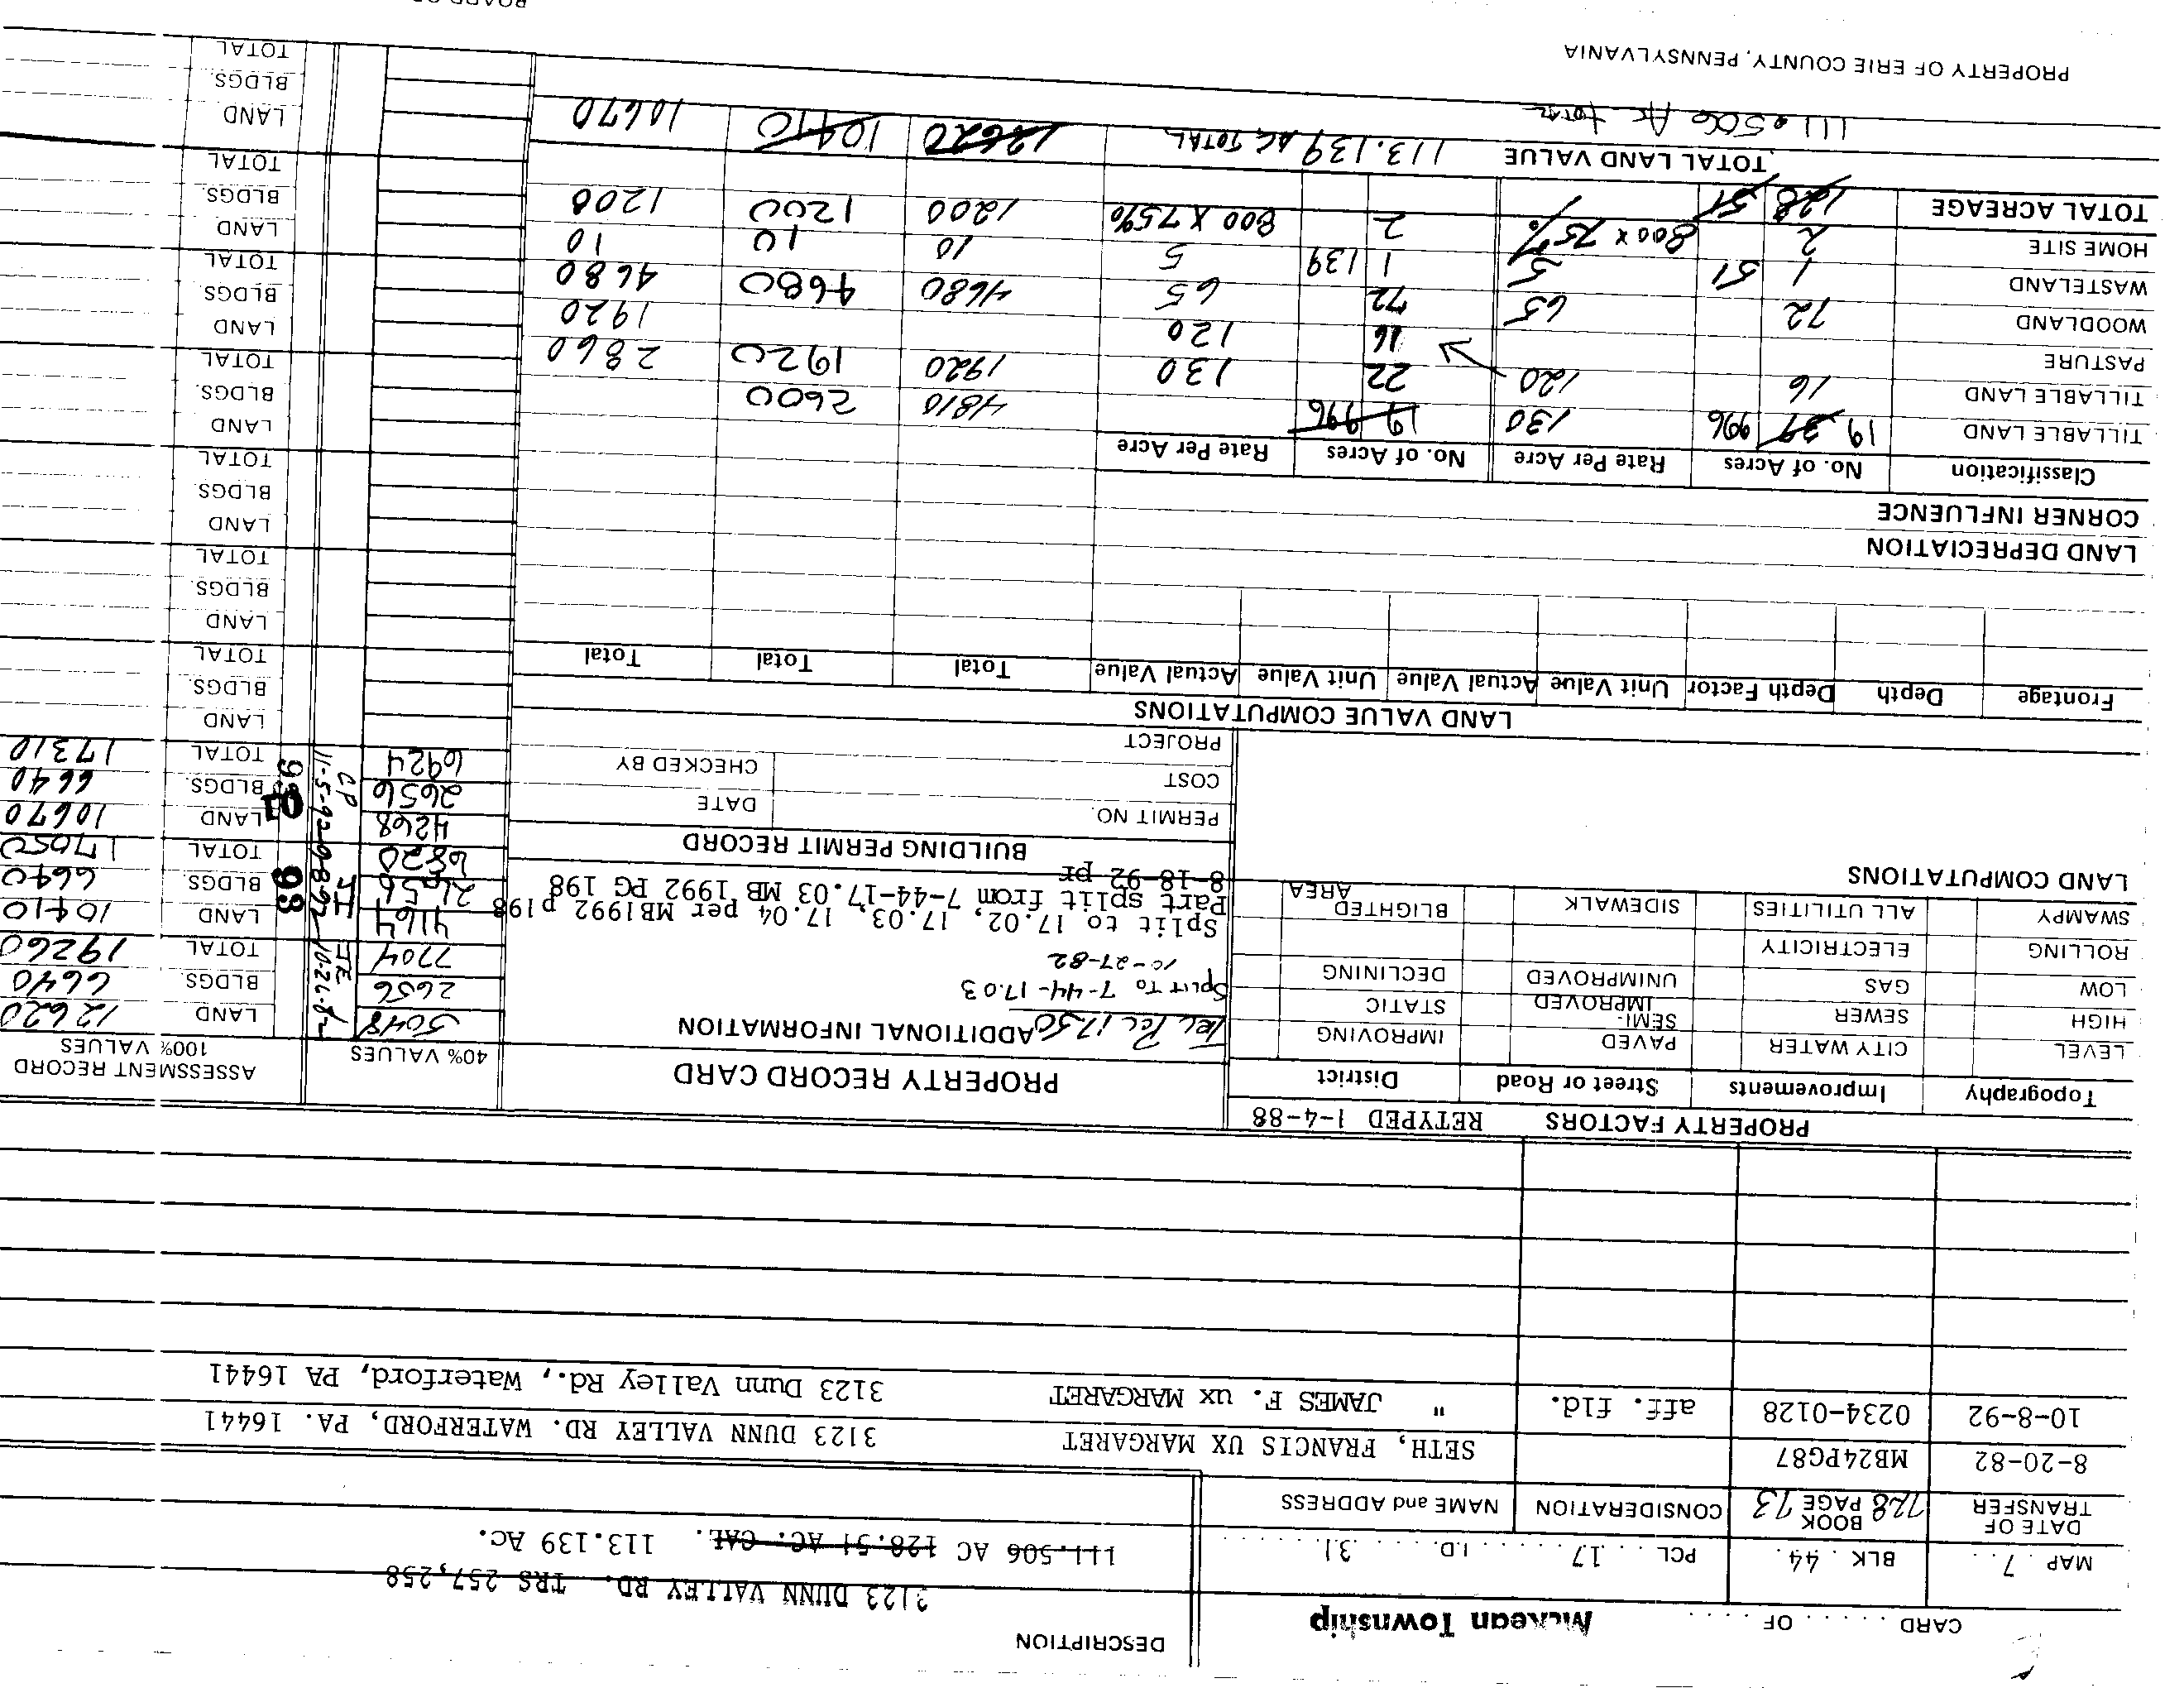 CARD ..... OF ..... McKean Township
DESCRIPTION
3123 DUNN VALLEY RD. TRS 257,258
MAP . 7 . . BLK . 44 . PCL . . . 17 . . . . . I.D. . . . . 31 . . . . . .
111.506 AC 128.51 AC. CAL. 113.139 Ac.
DATE OF TRANSFER 728 BOOK PAGE 73 CONSIDERATION NAME and ADDRESS
8-20-82 MB24PG87 SETH, FRANCIS UX MARGARET 3123 DUNN VALLEY RD. WATERFORD, PA. 16441
10-8-92 0234-0128 aff. fid. " JAMES F. ux MARGARET 3123 Dunn Valley Rd., Waterford, PA 16441
PROPERTY FACTORS RETYPED 1-4-88
Topography Improvements Street or Road District
LEVEL CITY WATER PAVED IMPROVING
HIGH SEWER SEMI-IMPROVED STATIC
LOW GAS UNIMPROVED DECLINING
ROLLING ELECTRICITY
SWAMPY ALL UTILITIES SIDEWALK BLIGHTED AREA
LAND COMPUTATIONS
PROPERTY RECORD CARD
ADDITIONAL INFORMATION
Pcl 17.50
Split To 7-44-17.03
10-27-82
Split to 17.02, 17.03, 17.04 per MB1992 p198
Part split from 7-44-17.03 MB 1992 PG 198
8-18-92 pr
BUILDING PERMIT RECORD
PERMIT NO. DATE
COST CHECKED BY
PROJECT
40% VALUES ASSESSMENT RECORD 100% VALUES
5048 LAND 12620
2656 BLDGS. 6640
7704 TOTAL 19260
4164 LAND 10410
2656 93 BLDGS 6640
6820 TOTAL 17050
4268 LAND 10670
2656 BLDGS. 6640
6924 CP 11-5-92 TOTAL 17310
LAND
BLDGS.
TOTAL
LAND
BLDGS
TOTAL
LAND
BLDGS
TOTAL
LAND
BLDGS.
TOTAL
LAND
BLDGS
TOTAL
LAND
BLDGS
TOTAL
LAND
BLDGS
TOTAL
LAND VALUE COMPUTATIONS
Frontage Depth Depth Factor Unit Value Actual Value Unit Value Actual Value Total Total Total
LAND DEPRECIATION
CORNER INFLUENCE
Classification No. of Acres Rate Per Acre No. of Acres Rate Per Acre
TILLABLE LAND 19 37 996 130 19 996 4810 2600
TILLABLE LAND 16 120 22 130 1920 1920 2860
PASTURE 16 120 1920
WOODLAND 72 65 72 65 4680 4680 4680
WASTELAND 1 51 5 1 139 5 10 10 10
HOME SITE 2 800 x 75% 2 800 X 75% 1200 1200 1200
TOTAL ACREAGE 128 51
TOTAL LAND VALUE 113.139 AC TOTAL 12620 10410 10670
111.506 Ac total
PROPERTY OF ERIE COUNTY, PENNSYLVANIA